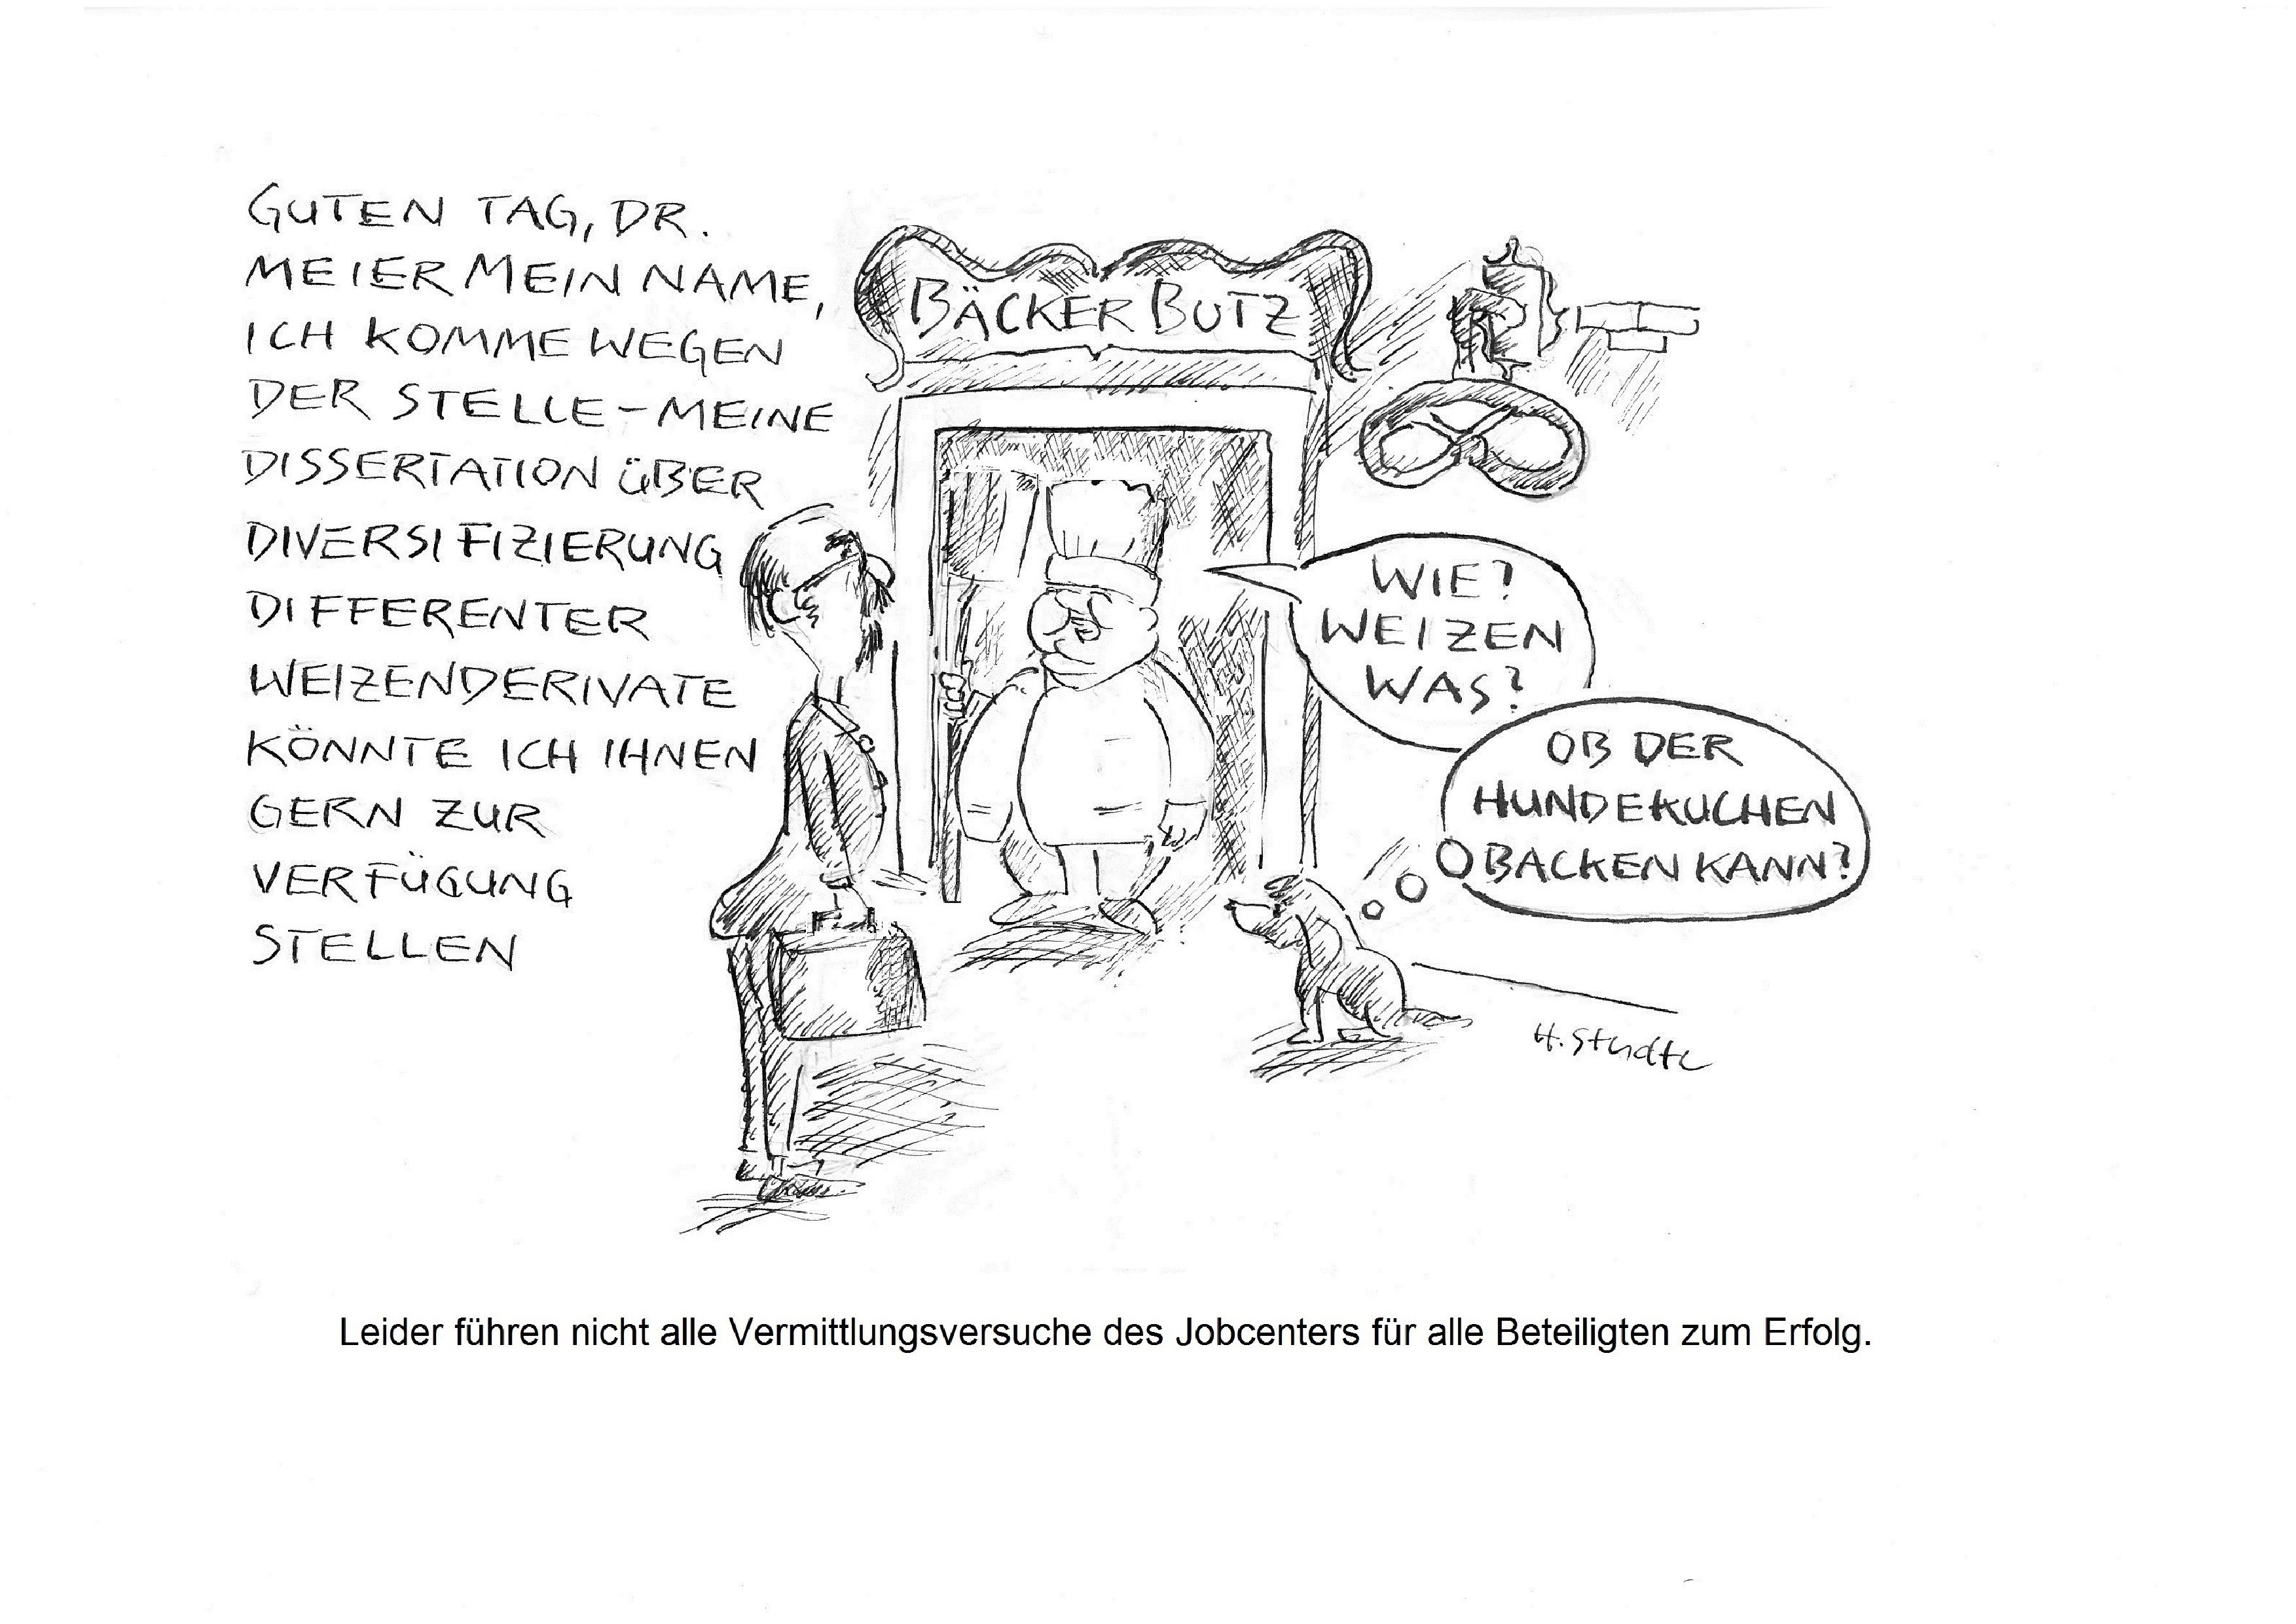 GUTEN TAG, DR.
MEIER MEIN NAME,
ICH KOMME WEGEN
DER STELLE - MEINE
DISSERTATION ÜBER
DIVERSIFIZIERUNG
DIFFERENTER
WEIZENDERIVATE
KÖNNTE ICH IHNEN
GERN ZUR
VERFÜGUNG
STELLEN
BÄCKER BUTZ
WIE?
WEIZEN
WAS?
OB DER
HUNDEKUCHEN
BACKEN KANN?
H. Studte
Leider führen nicht alle Vermittlungsversuche des Jobcenters für alle Beteiligten zum Erfolg.